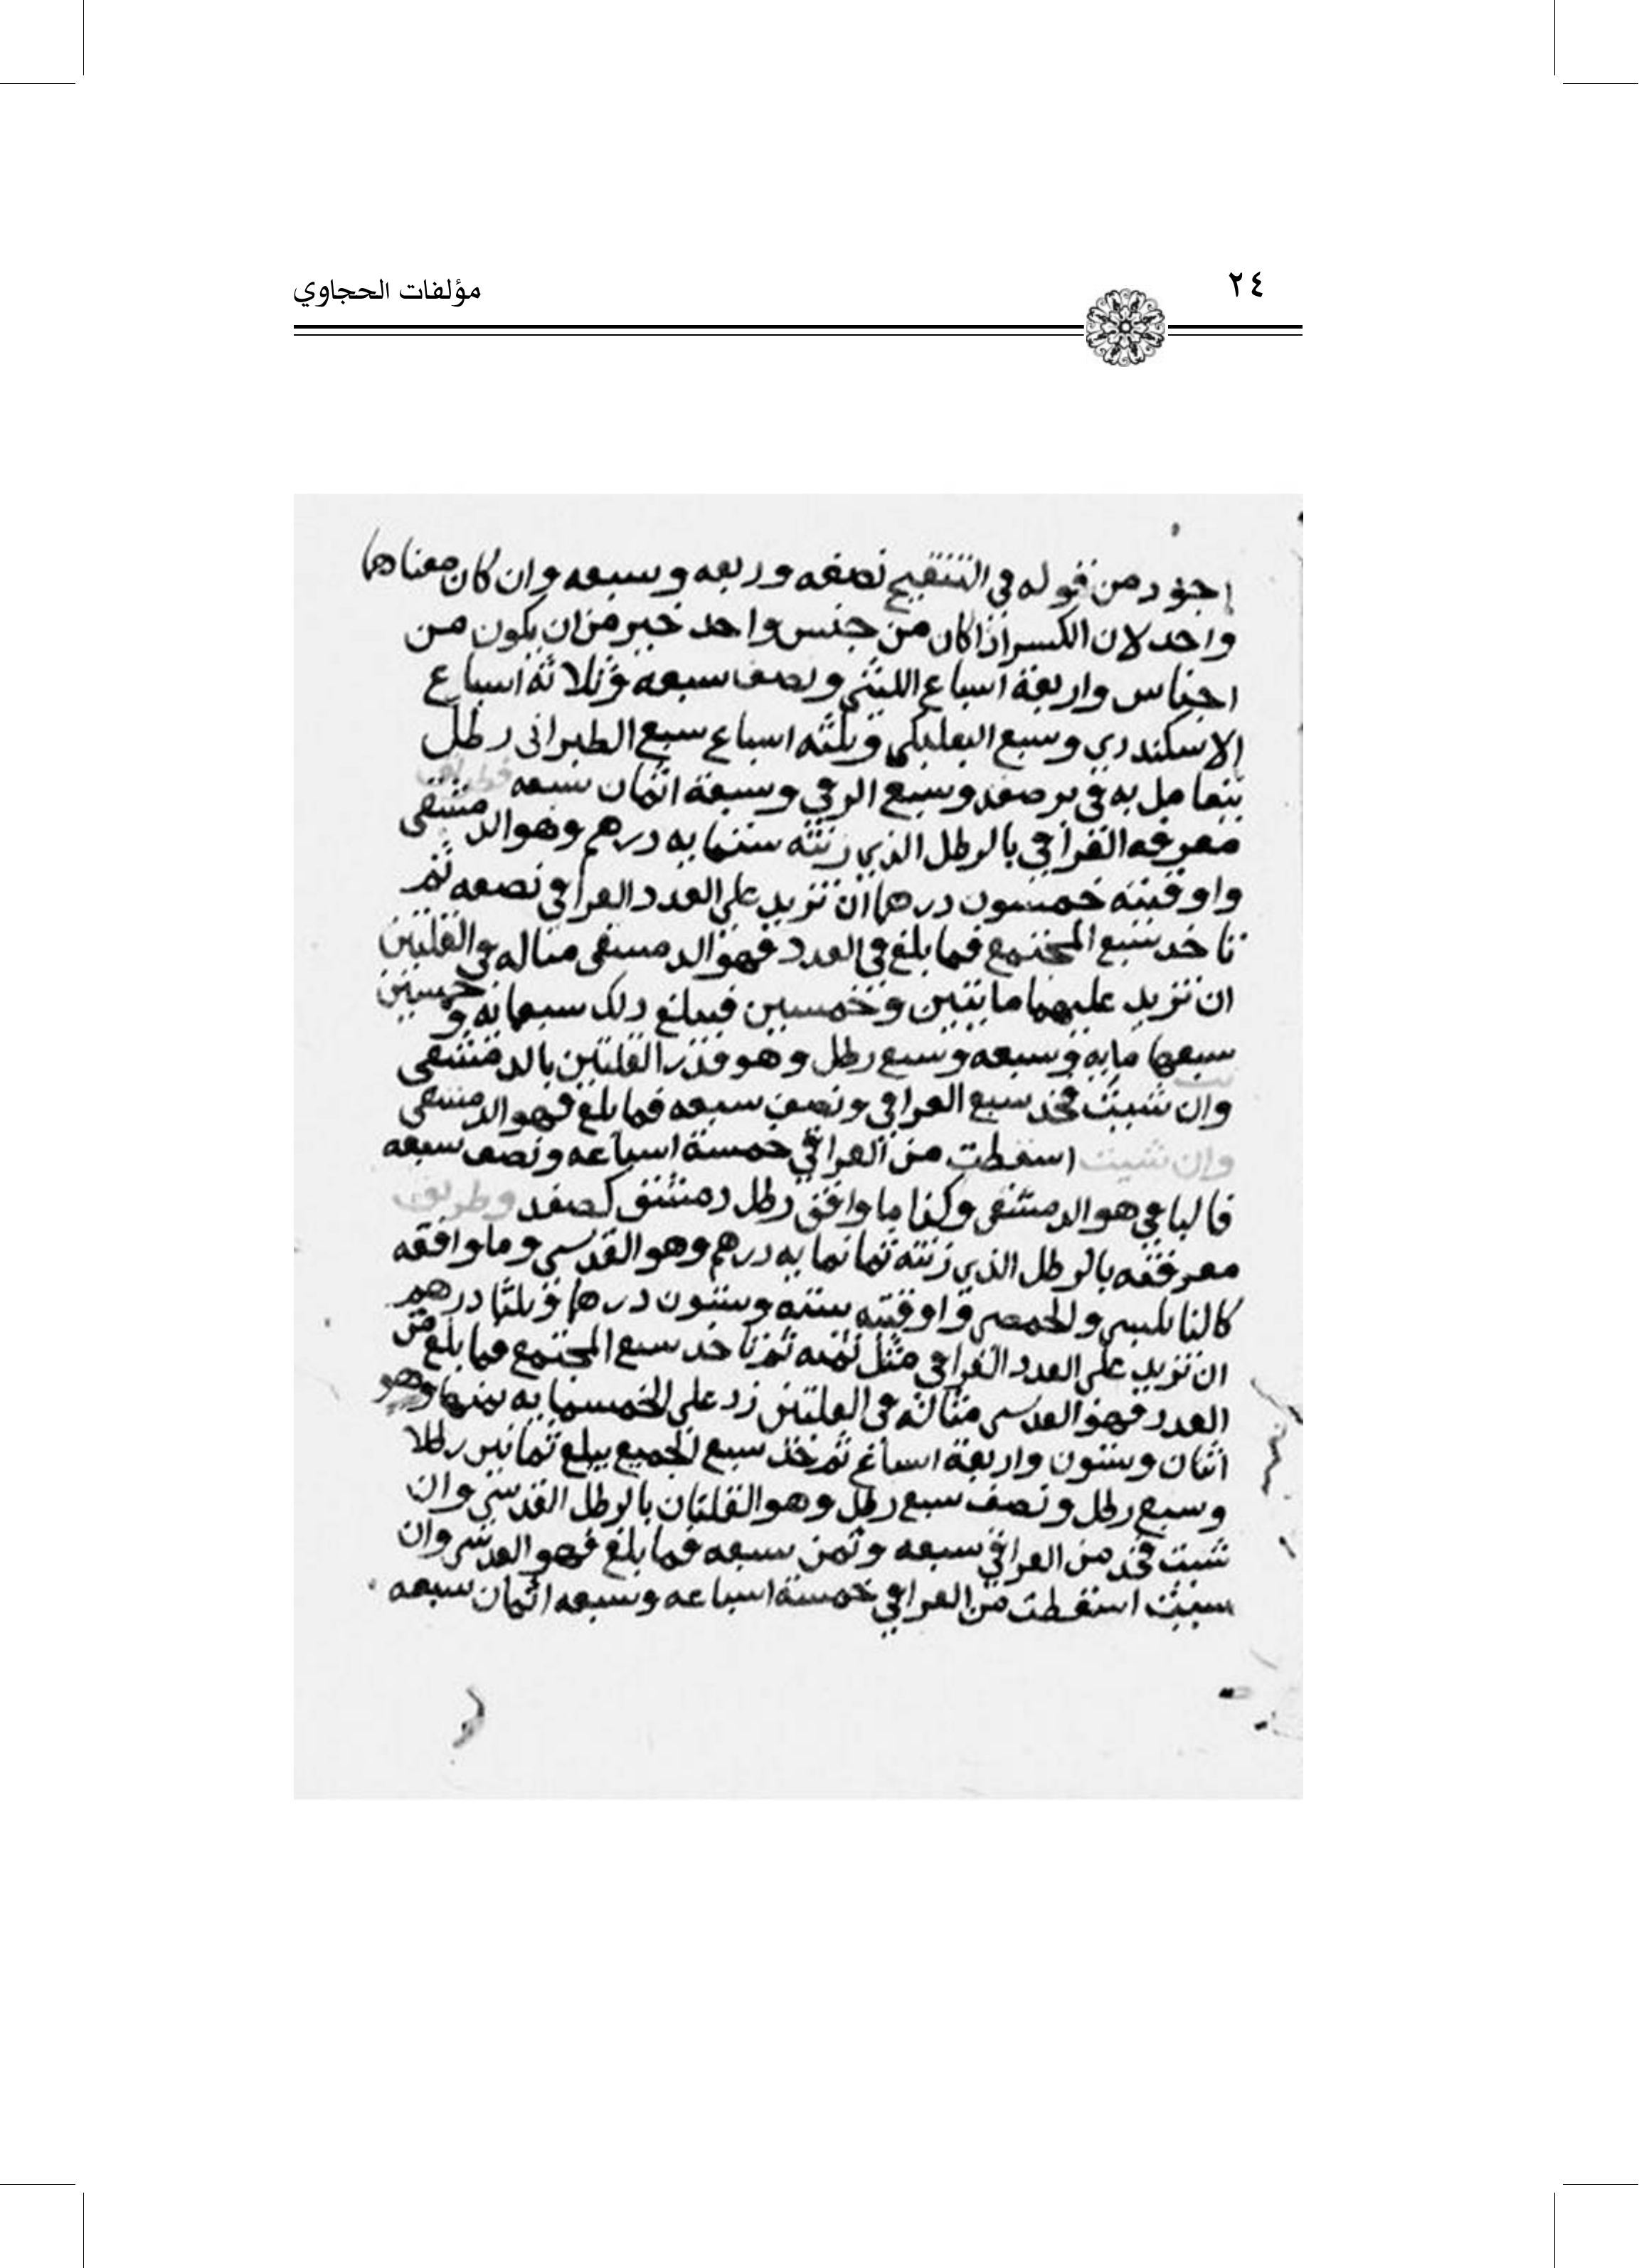 ٢٤
مؤلفات الحجاوي
اجود من قوله في التنقيح نصفه وربعه وسبعه وان كان معناهما
واحد لان الكسر اذا كان من جنس واحد خير من ان يكون من
اجناس واربعة اسباع الليثي ونصف سبعه وثلاثة اسباع
الاسكندري وسبع البعلبكي وثلثه اسباع سبع الطبراني رطل
يتعامل به في بر صفد وسبع الرقي وسبعة اثمان سبعه فطريق
معرفه العراقي بالرطل الذي زنته ستمايه درهم وهو الدمشقي
واوقيته خمسون درهما ان تزيد علي العدد العراقي نصفه ثم
تاخد سبع المجتمع فما بلغ في العدد فهو الدمشقي مثاله في القلتين
ان تزيد عليهما مايتين وخمسين فيبلغ دلك سبعمايه وخمسين
سبعها مايه وسبعه وسبع رطل وهو قدر القلتين بالدمشقي
وان شيت فخد سبع العراقي ونصف سبعه فما بلغ فهو الدمشقي
وان شيت اسقطت من العراقي خمسة اسباعه ونصف سبعه
فالباقي هو الدمشقي وكذا ما وافق رطل دمشق كصفد وطريق
معرفته بالرطل الذي زنته ثمانمايه درهم وهو القدسي وما وافقه
كالنابلسي والحمصي واوقيته سته وستون درهما وثلثا درهم
ان تزيد علي العدد العراقي مثل ثمنه ثم تاخد سبع المجتمع فما بلغ من
العدد فهو القدسي مثاله في القلتين زد علي الخمسمايه ثمنها وهو
اثنان وستون واربعة اسباع ثم خذ سبع الجميع يبلغ ثمانين رطلا
وسبع رطل ونصف سبع رطل وهو القلتان بالرطل القدسي وان
شيت فخد من العراقي سبعه وثمن سبعه فما بلغ فهو القدسي وان
سيت اسقطت من العراقي خمسة اسباعه وسبعه اثمان سبعه